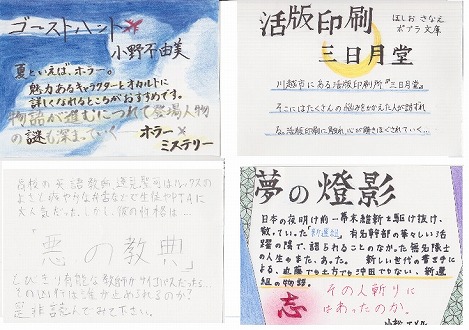 ゴーストハント
小野不由美
夏といえば、ホラー。
魅力あるキャラクターとオカルトに
詳しくなれるところがおすすめです。
物語が進むにつれて登場人物
の謎も深まっていく
ホラー×
ミステリー
活版印刷
三日月堂
ほしおさなえ
ポプラ文庫
川越市にある活版印刷所『三日月堂』
そこにはたくさんの悩みをかかえた人が訪ずれ
る。活版印刷に触れ心が解きほぐされていく…
高校の英語教師 蓮見聖司はルックスの
よさと爽やかな弁舌などで生徒やPTAに
大人気だった。しかし、彼の性格は…
「悪の教典」
とびきり有能な教師がサイコパスだったら…
その凶行は誰が止められるのか?
是非読んでみて下さい。
夢の燈影
日本の夜明け前―幕末維新を駆け抜け、
散っていった「新選組」 有名幹部の華々しい活
躍の陰で、語られることのなかった無名隊士
の人生もまた、あった。 新しい世代の書き手に
よる、近藤でも土方でも沖田でもない、新選
組の物語。
志
その人斬りに
はあったのか。
小松エメル